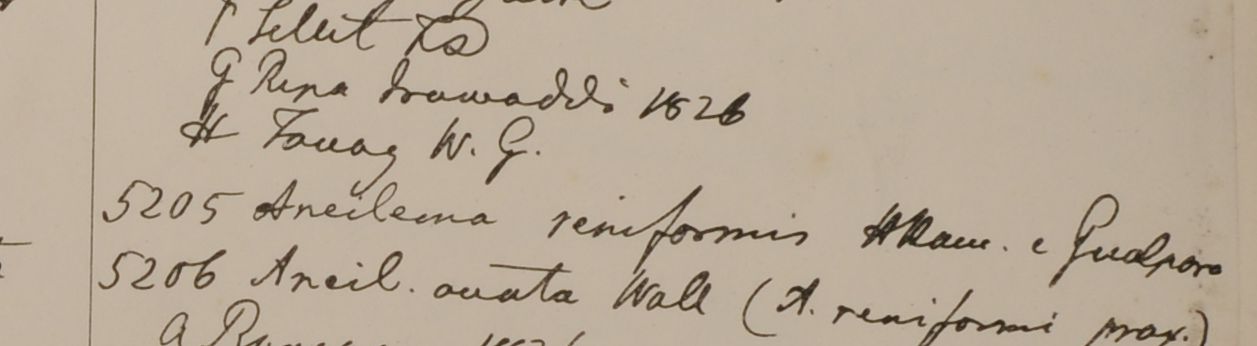 F Silhet FS
G Ripa Irawaddi 1826
H Tavoy W. G.
5205 Aneilema reniformis HHam. e Gualpara
5206 Aneil. ovata Wall (A. reniformi prox.)